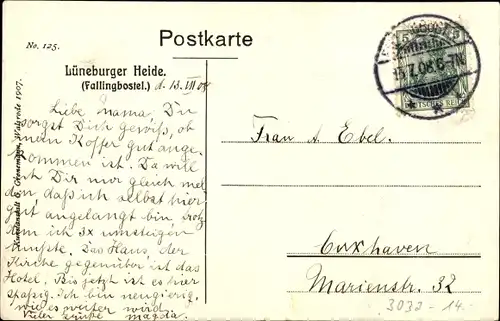 No. 125.
Postkarte
Lüneburger Heide.
(Fallingbostel.) d. 13. VII 08
Liebe Mama, Du
sorgst Dich gewiß, ob
mein Koffer gut ange-
kommen ist. Da will
ich Dir nur gleich mel-
den, daß ich selbst hier
gut angelangt bin trotz
dem ich 3x umsteigen
mußte. Das Haus, der
Kirche gegenüber ist das
Hotel. Bis jetzt ist es hier
spaßig. Ich bin neugierig,
wie es weiter wird.
Viele Grüße
Kunstanstalt G. Grönemeyer, Walsrode 1907.
13.7.08. 6-7N.
DEUTSCHES REICH
Frau A. Ebel.
Cuxhaven
Marienstr. 32
3032 - 14.-